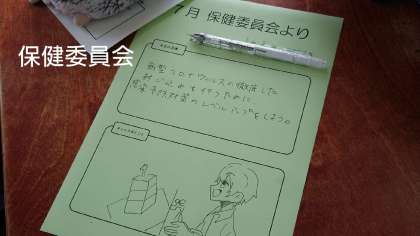 7月 保健委員会より
保健委員会
新型コロナウイルスの徹底した
封じ込めを行うために
感染予防対策のレベルアップをしよう。